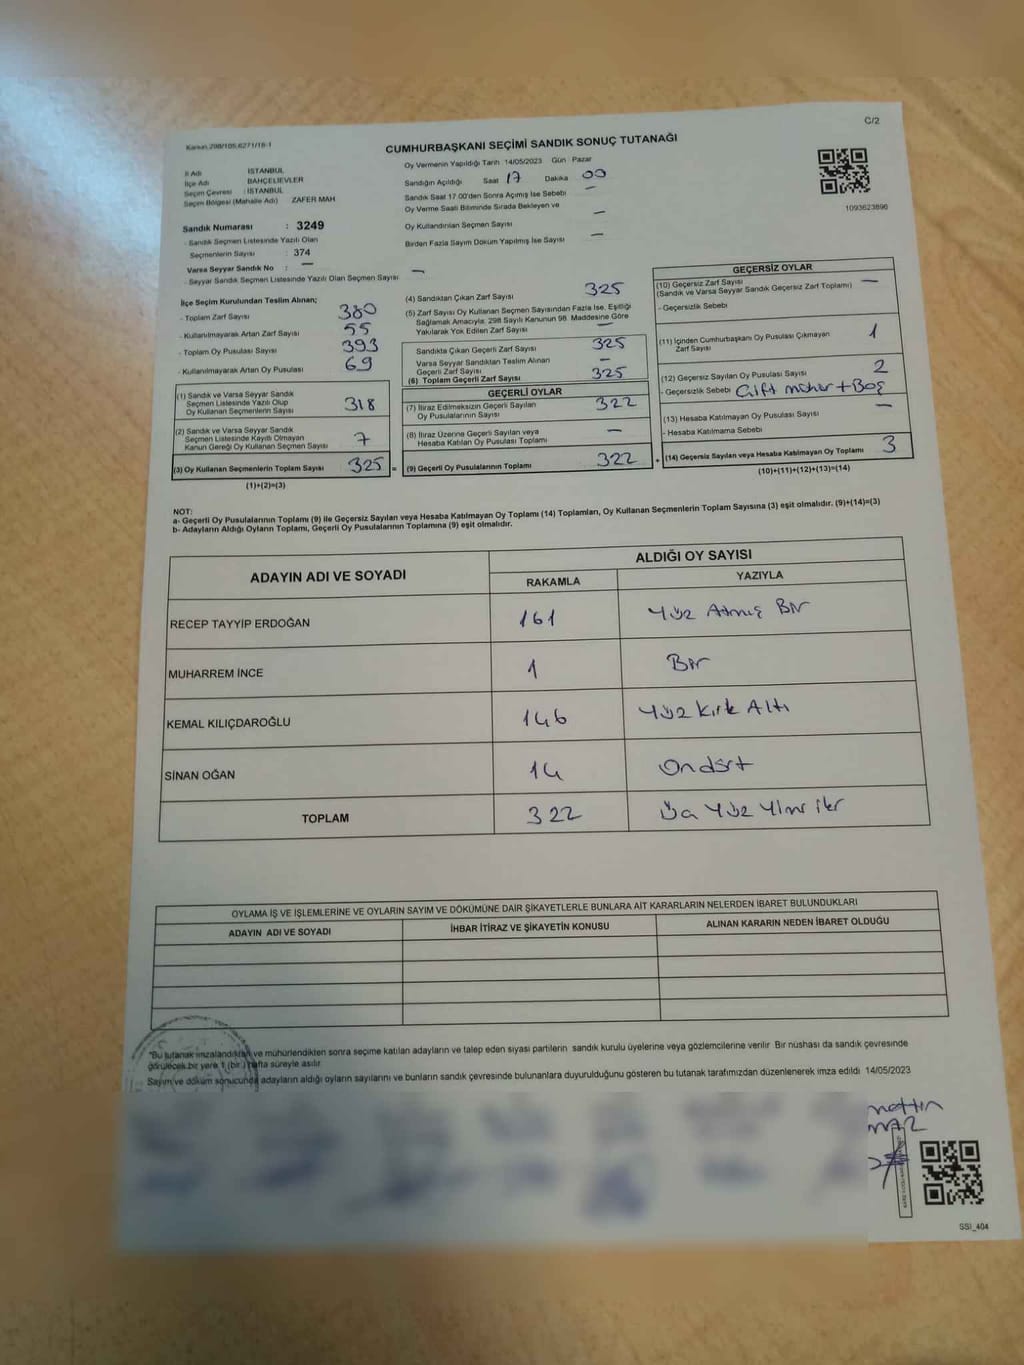 C/2
Kanun 298/105,6271/18-1
CUMHURBAŞKANI SEÇİMİ SANDIK SONUÇ TUTANAĞI
İl Adı : İSTANBUL
İlçe Adı : BAHÇELİEVLER
Seçim Çevresi : İSTANBUL
Seçim Bölgesi (Mahalle Adı) ZAFER MAH
Sandık Numarası : 3249
- Sandık Seçmen Listesinde Yazılı Olan
Seçmenlerin Sayısı : 374
Varsa Seyyar Sandık No : —
- Seyyar Sandık Seçmen Listesinde Yazılı Olan Seçmen Sayısı —
Oy Vermenin Yapıldığı Tarih 14/05/2023 Gün Pazar
Sandığın Açıldığı Saat 17 Dakika 00
Sandık Saat 17 00'den Sonra Açımış İse Sebebi —
Oy Verme Saati Bitiminde Sırada Bekleyen ve
Oy Kullandırılan Seçmen Sayısı —
Birden Fazla Sayım Döküm Yapılmış İse Sayısı —
1093623896
İlçe Seçim Kurulundan Teslim Alınan;
- Toplam Zarf Sayısı 380
- Kullanılmayarak Artan Zarf Sayısı 55
- Toplam Oy Pusulası Sayısı 393
- Kullanılmayarak Artan Oy Pusulası 69
(1) Sandık ve Varsa Seyyar Sandık
Seçmen Listesinde Yazılı Olup
Oy Kullanan Seçmenlerin Sayısı 318
(2) Sandık ve Varsa Seyyar Sandık
Seçmen Listesinde Kayıtlı Olmayan
Kanun Gereği Oy Kullanan Seçmen Sayısı 7
(3) Oy Kullanan Seçmenlerin Toplam Sayısı 325 =
(1)+(2)=(3)
(4) Sandıktan Çıkan Zarf Sayısı 325
(5) Zarf Sayısı Oy Kullanan Seçmen Sayısından Fazla İse, Eşitliği
Sağlamak Amacıyla; 298 Sayılı Kanunun 98. Maddesine Göre
Yakılarak Yok Edilen Zarf Sayısı —
Sandıkta Çıkan Geçerli Zarf Sayısı 325
Varsa Seyyar Sandıktan Teslim Alınan
Geçerli Zarf Sayısı —
(6) Toplam Geçerli Zarf Sayısı 325
GEÇERLİ OYLAR
(7) İtiraz Edilmeksizin Geçerli Sayılan
Oy Pusulalarının Sayısı 322
(8) İtiraz Üzerine Geçerli Sayılan veya
Hesaba Katılan Oy Pusulası Toplamı —
(9) Geçerli Oy Pusulalarının Toplamı 322 +
GEÇERSİZ OYLAR
(10) Geçersiz Zarf Sayısı
(Sandık ve Varsa Seyyar Sandık Geçersiz Zarf Toplamı) —
- Geçersizlik Sebebi
(11) İçinden Cumhurbaşkanı Oy Pusulası Çıkmayan
Zarf Sayısı 1
(12) Geçersiz Sayılan Oy Pusulası Sayısı 2
- Geçersizlik Sebebi Çift mühür + Boş
(13) Hesaba Katılmayan Oy Pusulası Sayısı —
- Hesaba Katılmama Sebebi
(14) Geçersiz Sayılan veya Hesaba Katılmayan Oy Toplamı 3
(10)+(11)+(12)+(13)=(14)
NOT:
a- Geçerli Oy Pusulalarının Toplamı (9) ile Geçersiz Sayılan veya Hesaba Katılmayan Oy Toplamı (14) Toplamları, Oy Kullanan Seçmenlerin Toplam Sayısına (3) eşit olmalıdır. (9)+(14)=(3)
b- Adayların Aldığı Oyların Toplamı, Geçerli Oy Pusulalarının Toplamına (9) eşit olmalıdır.
ADAYIN ADI VE SOYADI
ALDIĞI OY SAYISI
RAKAMLA YAZIYLA
RECEP TAYYİP ERDOĞAN 161 Yüz Atmış Bir
MUHARREM İNCE 1 Bir
KEMAL KILIÇDAROĞLU 146 Yüz Kırk Altı
SİNAN OĞAN 14 Ondört
TOPLAM 322 Üç Yüz Yirmi iki
OYLAMA İŞ VE İŞLEMLERİNE VE OYLARIN SAYIM VE DÖKÜMÜNE DAİR ŞİKAYETLERLE BUNLARA AİT KARARLARIN NELERDEN İBARET BULUNDUKLARI
ADAYIN ADI VE SOYADI İHBAR İTİRAZ VE ŞİKAYETİN KONUSU ALINAN KARARIN NEDEN İBARET OLDUĞU
"Bu tutanak imzalandıktan ve mühürlendikten sonra seçime katılan adayların ve talep eden siyasi partilerin sandık kurulu üyelerine veya gözlemcilerine verilir Bir nüshası da sandık çevresinde
görülecek bir yere 1 (bir ) hafta süreyle asılır
Sayım ve döküm sonucunda adayların aldığı oyların sayılarını ve bunların sandık çevresinde bulunanlara duyurulduğunu gösteren bu tutanak tarafımızdan düzenlenerek imza edildi 14/05/2023
SSI_404